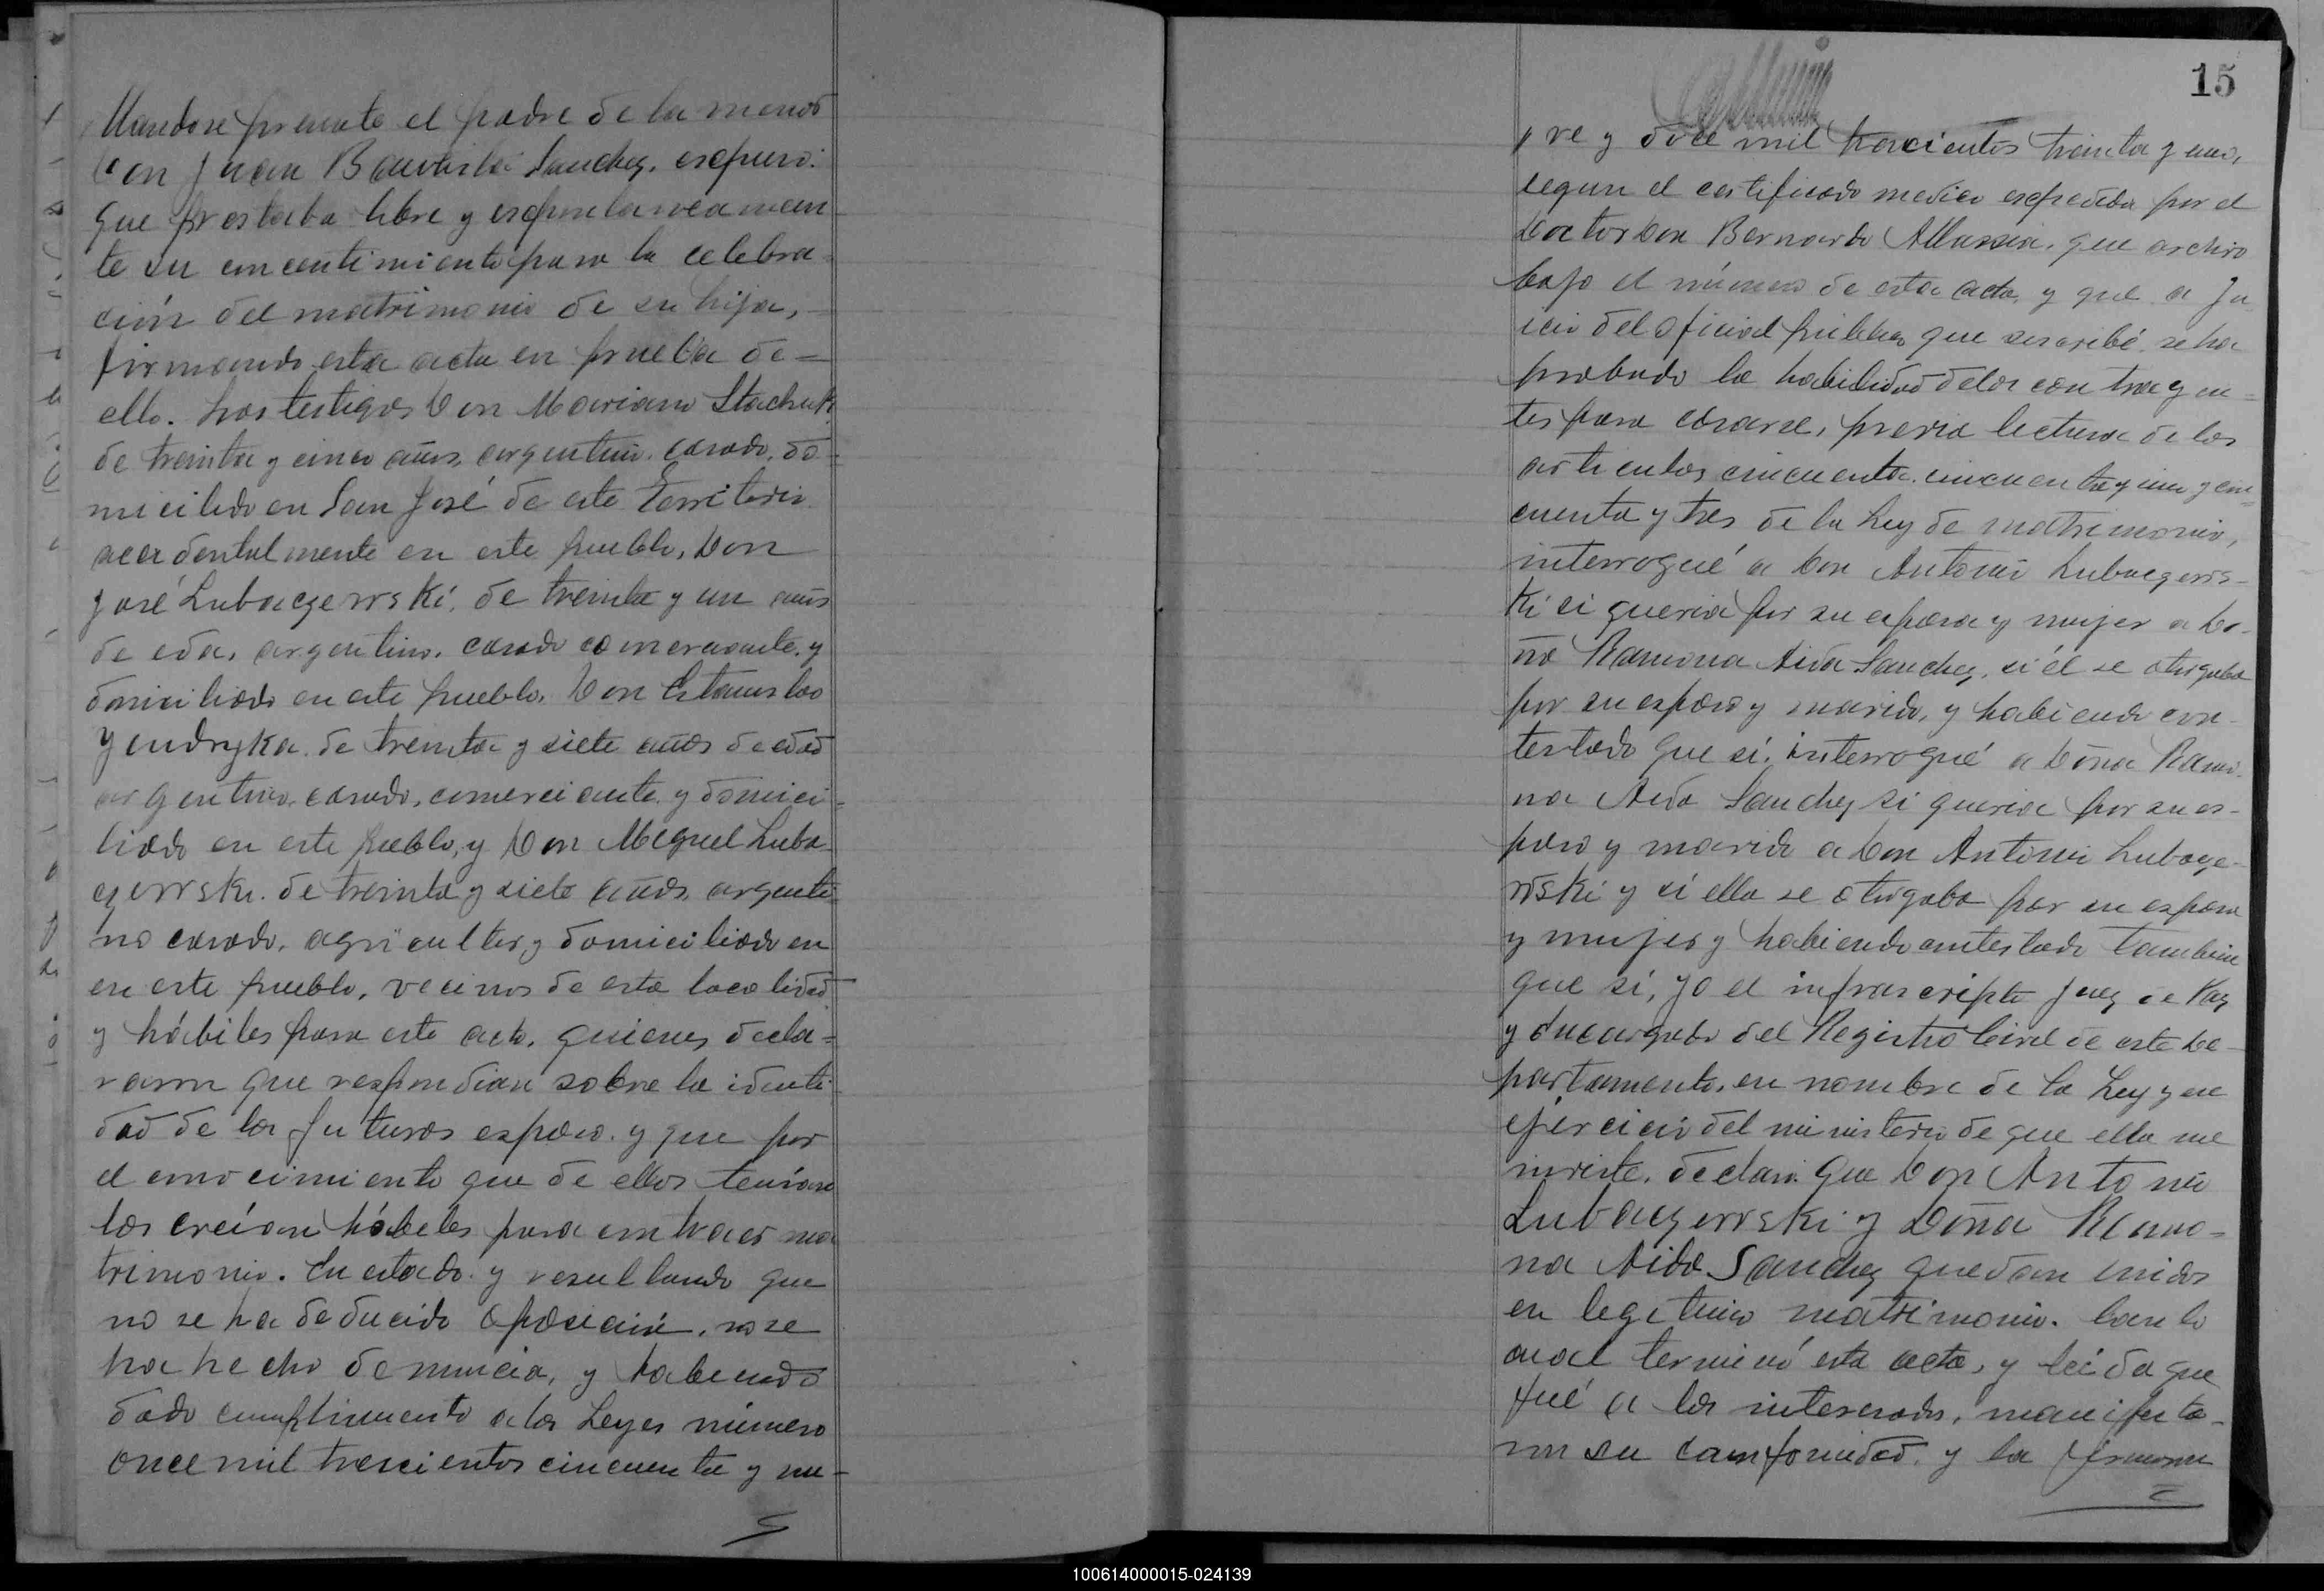 llandose presente el padre de la menor
Don Juan Bautista Sanchez, expuso:
que prestaba libre y espontaneamen-
te su concentimiento para la celebra-
ción del matrimonio de su hija,
firmando esta acta en prueba de=
ello. Los testigos Don Mariano Stachuk
de treinta y cinco años, argentino, casado, do-
miciliado en San José de este Territorio
accidentalmente en este pueblo, Don
José Lubaczewski, de treinta y un años
de eda, argentino, casado comerciante, y
domiciliado en este pueblo, Don Estanislao
Yendryka de treinta y siete años de edad
argentino, casado, comerciante y domici=
liado en este pueblo, y Don Miguel Luba-
czewski de treinta y siete años, argenti-
no casado, agricultor y domiciliado en
en este pueblo, vecinos de esta localidad
y hábiles para este acto, quienes decla=
raron que respondian sobre la identi-
dad de los futuros esposos y que por
el conocimiento que de ellos tenían
los creían hábiles para contraer ma
trimonio. En estado y resultando que
no se ha deducido oposición, no se
ha hecho denuncia, y habiendo
dado cumplimiento a las Leyes número
once mil trescientos cincuenta y nu-
15
ve y doce mil trecientos treinta y uno,
segun el certificado medico expedido por el
Doctor Don Bernardo que archivo
bajo el número de esta acta, y que a ju-
icio del oficial público que suscribé se ha
probado la habilidad de los contrayen=
tes para casarse, previa lectura de los
articulos cincuenta, cincuenta y uno y cin-
cuenta y tres de la Ley de matrimonio,
interrogué a Don Antonio Lubaczews-
ki si queria por su esposa y mujer a Do-
ña Ramona Aida Sanchez, si él se otorgaba
por su esposo y marido, y habiendo con-
testado que sí, interrogué a Doña Ramo-
na Aida Sanchez si queria por su es-
poso y marido a Don Antonio Lubacze-
wski y si ella se otorgaba por su esposa
y mujer y habiendo contestado tambien
que sí, yo el infrascripto Juez de Paz
y Encargado del Registro Civil de este De-
partamento, en nombre de la Ley y en
ejercicio del ministerio de que ella me
inviste, declaro que Don Antonio
Lubaczewski y Doña Ramo-
na Aida Sanchez quedan unidos
en legitimo matrimonio. Con lo
cual terminó esta acta, y leída que
fué a los interesados, manifesta-
ron su conformidad, y la firman
100614000015-024139